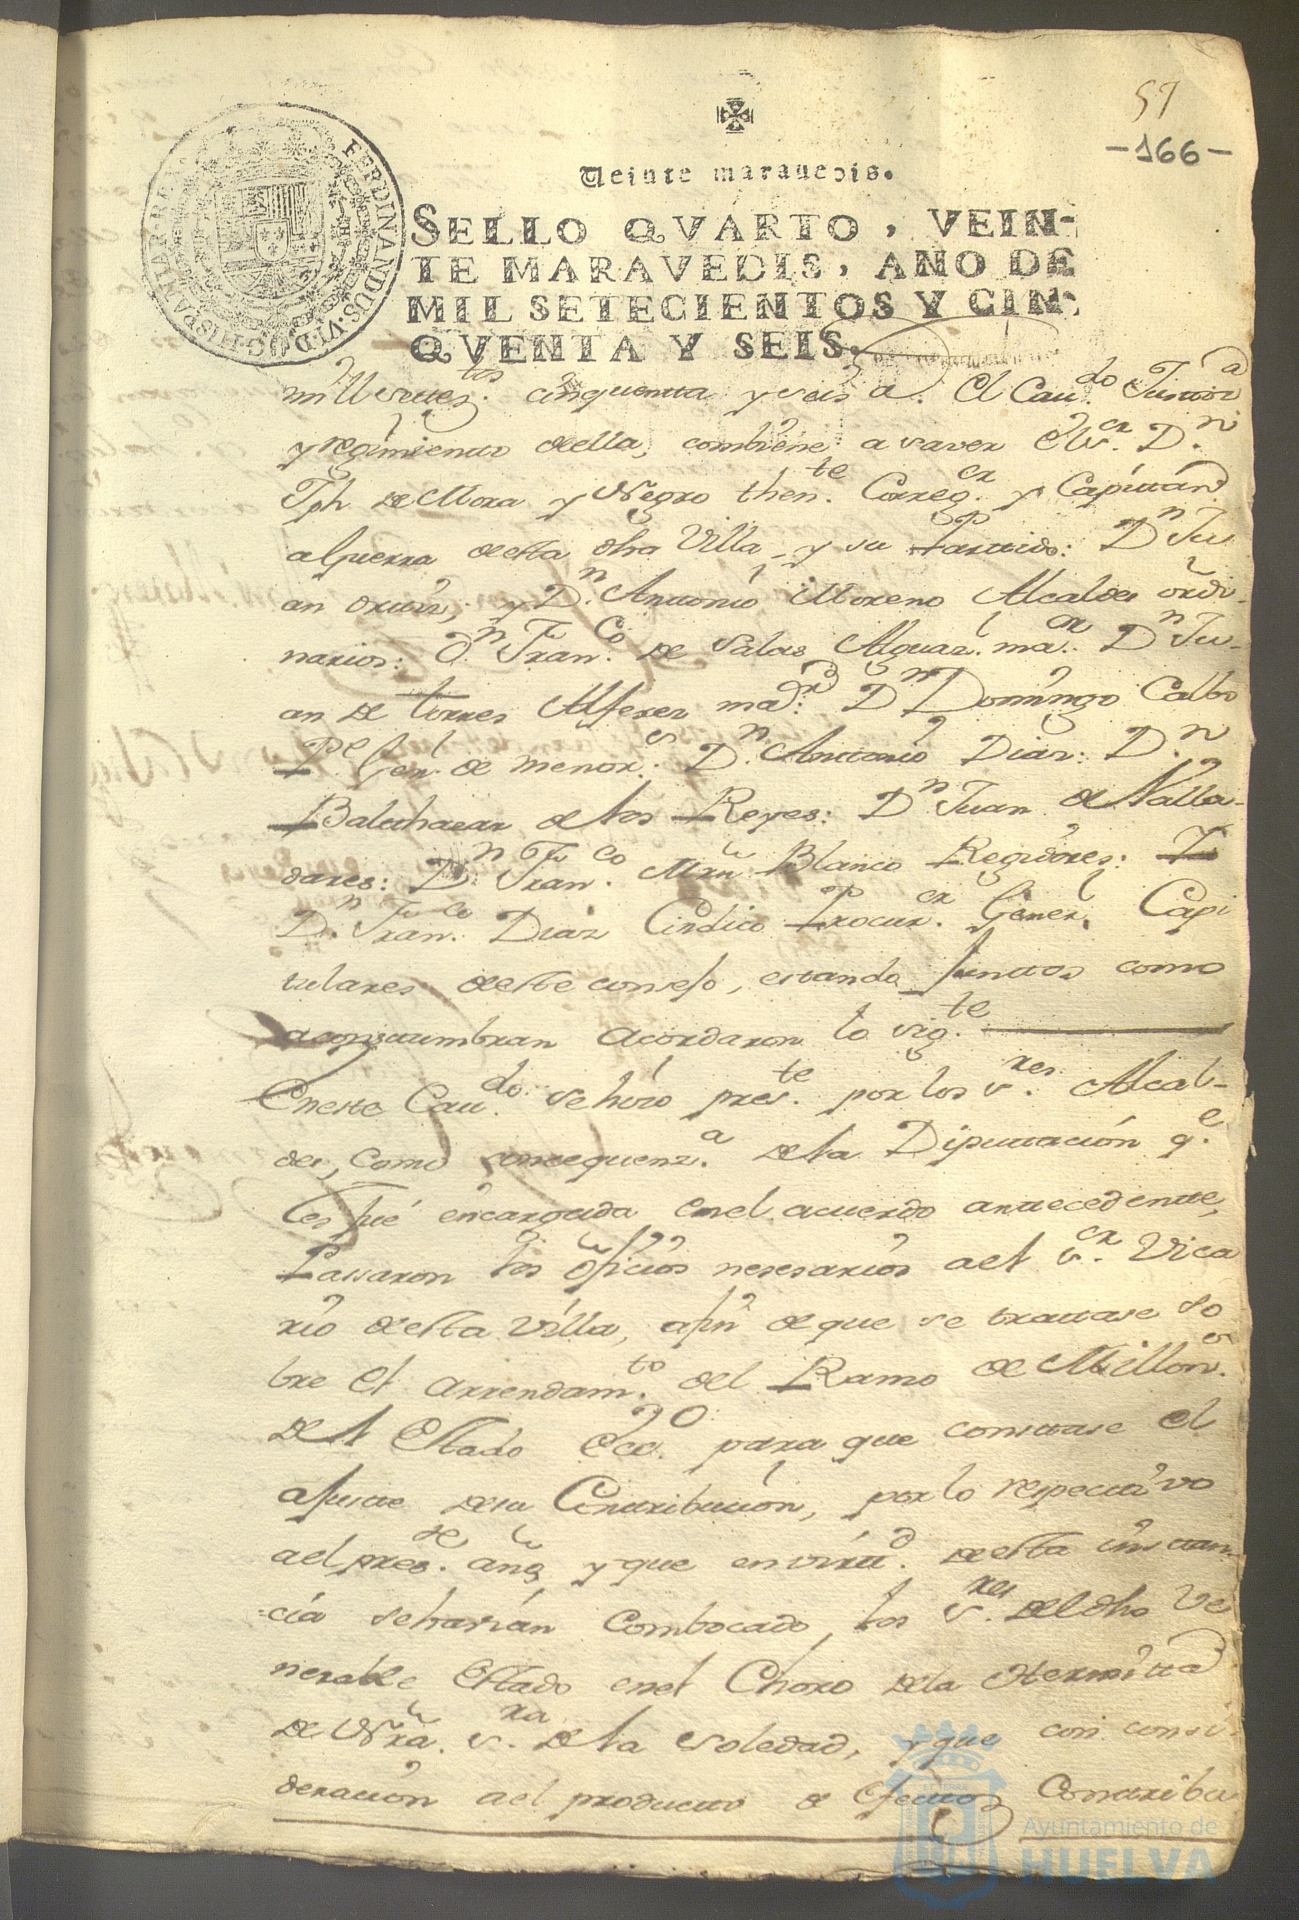 57
-166-
Veinte maravedis.
SELLO QVARTO, VEIN-
TE MARAVEDIS, AÑO DE
MIL SETECIENTOS Y CIN-
QVENTA Y SEIS.
FERDINANDUS·VI·D·G·HISPANIAR·REX
mill settez.tos cinquentta y seis a. El Cau.do Justizia
y regimiento della, combiene a saver el S.or D.n
Jph de Mora y Negro then.te Correg.or y Capittan
a Guerra desta dha Villa, y su Parttido: D.n Ju
an        y D.n Anttonio Moreno Alcaldes ordi-
narios: D.n Fran.co de Salas Alguaz.l ma.or D.n Ju-
an de torres Alferez ma.or D.n Domingo Calbo
P.e Gen.l de menor.s D.n Anttonio Diaz: D.n
Balthazar de los Reyes: D.n Juan de Valla-
dares: D.n Fran.co Mrn Blanco Regidores:
D.n Fran.co Diaz Cindico Procur.or Gener.l Capi
tulares deste consejo, estando junttos como
acosttumbran acordaron lo sig.te
En este Cau.do se hizo pres.te por los S.res Alcal-
des, como consequenz.a de la Diputtacion q.e
les fué encargada en el acuerdo anttecedentte,
Passaron los oficios nesesarios a el S.or Vica
rio desta Villa, a fin de que se trattase so
bre el arrendam.to del Ramo de Millon.s
de el Estado Ecc.o para que constase el
ajuste de su Conttribucion, por lo respecttivo
a el pres.te año, y que en virtt.d de esta insttan-
cia se havian combocado los S.res del dho Ve
nerable Estado en el Choro de la Hermitta
de Nra. S.ra de la Soledad, y que con consi-
deracion a el productto de efecttos Conttribu
Ayuntamiento de
HUELVA